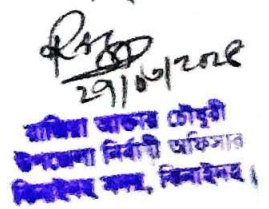 29/07/2025
রাজিয়া আক্তার চৌধুরী
উপজেলা নির্বাহী অফিসার
ঝিনাইদহ সদর, ঝিনাইদহ।